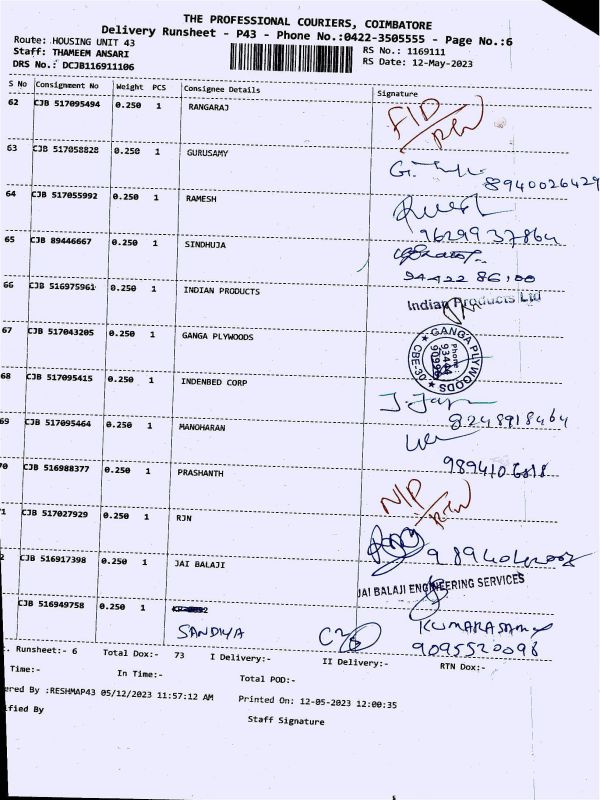 THE PROFESSIONAL COURIERS, COIMBATORE
Delivery Runsheet - P43 - Phone No.:0422-3505555 - Page No.:6
Route: HOUSING UNIT 43
RS No.: 1169111
Staff: THAMEEM ANSARI
RS Date: 12-May-2023
DRS No.: DCJB116911106
S No Consignment No Weight PCS Consignee Details Signature
62 CJB 517095494 0.250 1 RANGARAJ
63 CJB 517058828 0.250 1 GURUSAMY
8940026429
64 CJB 517055992 0.250 1 RAMESH
9629937864
65 CJB 89446667 0.250 1 SINDHUJA
94422 86100
66 CJB 516975961 0.250 1 INDIAN PRODUCTS
Indian Products Ltd
67 CJB 517043205 0.250 1 GANGA PLYWOODS
GANGA PLYWOODS CBE-30 Phone:
68 CJB 517095415 0.250 1 INDENBED CORP
8248918464
69 CJB 517095464 0.250 1 MANOHARAN
70 CJB 516988377 0.250 1 PRASHANTH
1 CJB 517027929 0.250 1 RJN
2 CJB 516917398 0.250 1 JAI BALAJI
JAI BALAJI ENGINEERING SERVICES
CJB 516949758 0.250 1
SANDIYA KUMARASAMY
9095520098
. Runsheet:- 6 Total Dox:- 73 I Delivery:- II Delivery:- RTN Dox:-
Time:- In Time:- Total POD:-
ered By :RESHMAP43 05/12/2023 11:57:12 AM Printed On: 12-05-2023 12:00:35
ified By Staff Signature